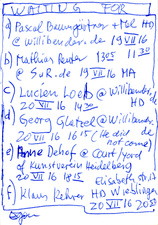 WAITING FOR
a) Pascal Baumgärtner + Mel HD
@ Willibender.de 19 VII 16
b) Mathias Reuter 1305 1130
@ S.R.de 19 VII 16 MA
c) Lucien Loeb @ Willibender,
20 VII 16 1430 HD
d) Georg Glatzel @ Willibender,
20 VII 16 1615 (He did not come)
e) Anne Dehof @ Courtyard
of Kunstverein Heidelberg
20 VII 16 1815
f) Klaus Kehrer HD Wieblingen
20 VII 16